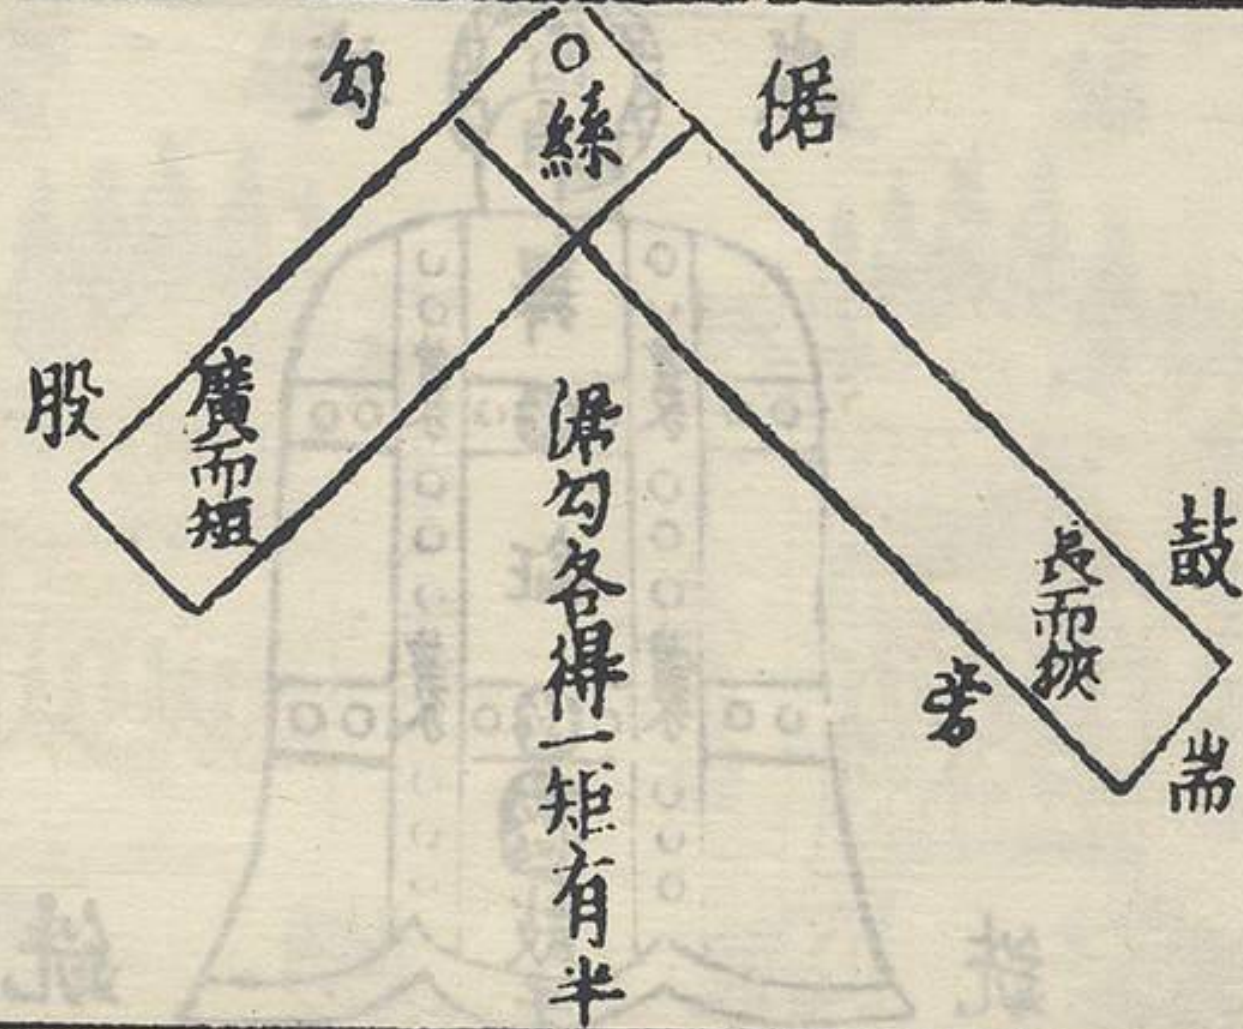 倨
勾
股
廣而短
倨勾各得一矩有半
鼓
長而狹
旁
耑